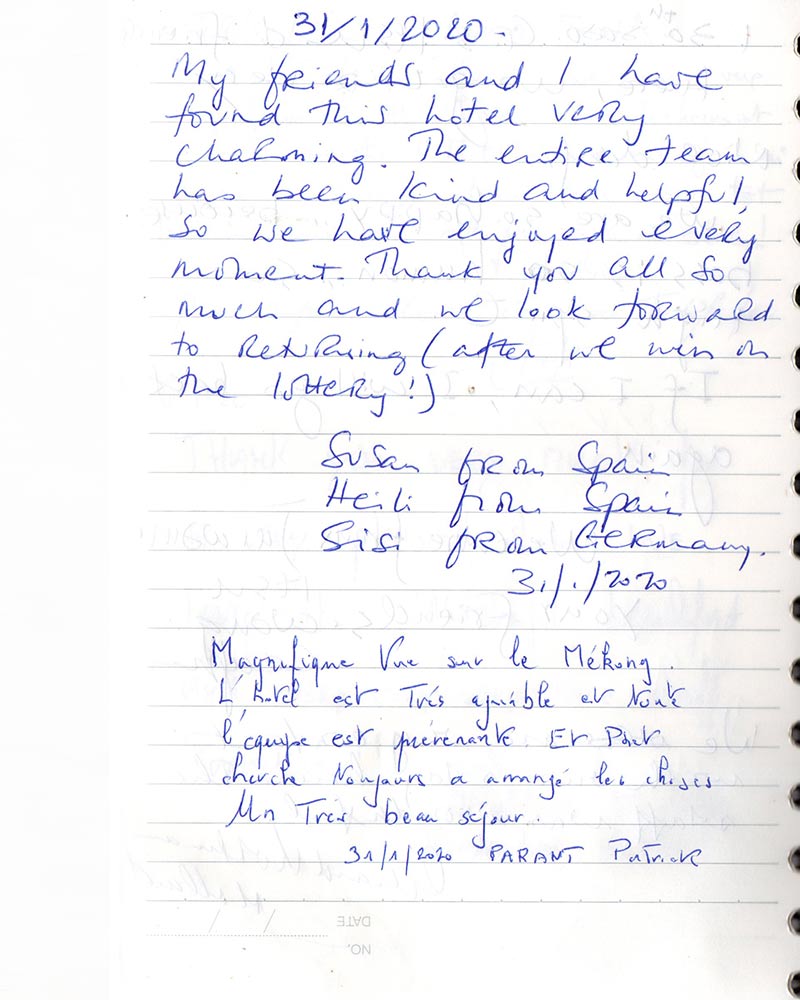 31/1/2020-
My friends and I have
found this hotel very
charming. The entire team
has been kind and helpful,
so we have enjoyed every
moment. Thank you all so
much and we look forward
to returning (after we win on
the lottery!)
Susan from Spain
Heili from Spain
Sisi from Germany.
31/1/2020
Magnifique Vue sur le Mékong.
L'hotel est Très agréable et
l'équipe est prévenante. Et
cherche a arrangé les choses
Un Très beau séjour.
31/1/2020 PARANT Patrick
DATE
NO.